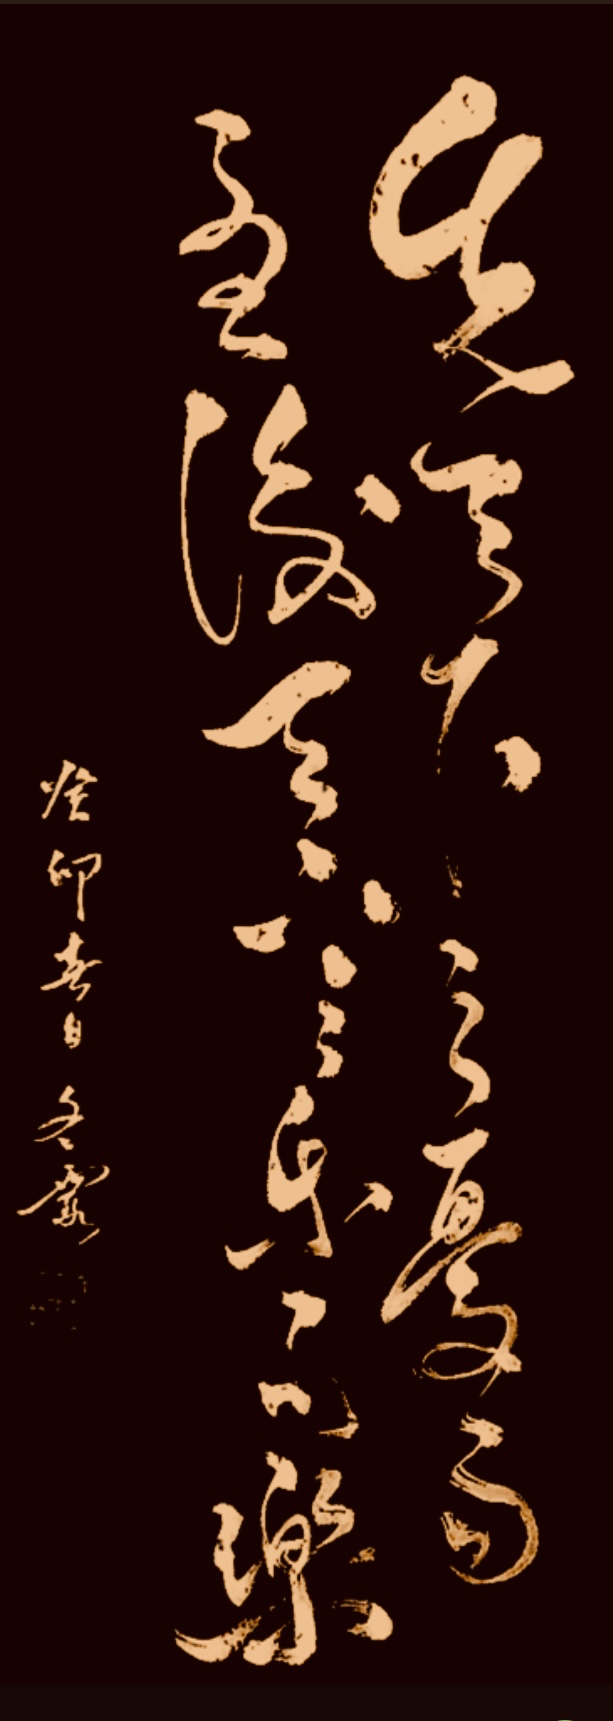 先天下之憂而
憂後天下之乐而樂
癸卯春日冬